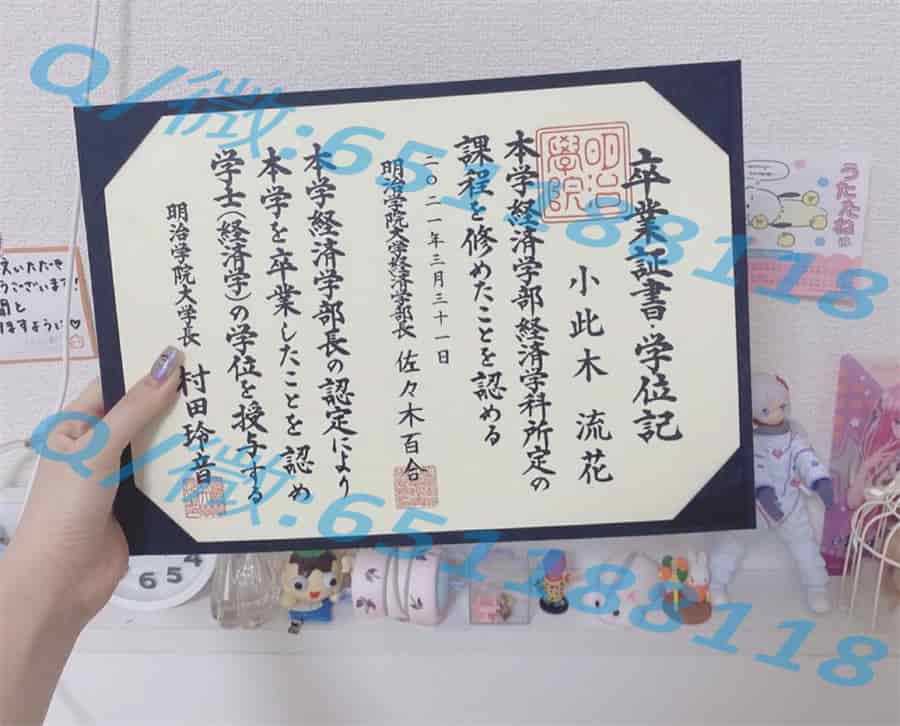 卒業証書・学位記
明治
學院
小此木 流花
本学経済学部経済学科所定の
課程を修めたことを認める
二〇二一年三月三十一日
明治学院大学経済学部長 佐々木百合
本学経済学部長の認定により
本学を卒業したことを認め
学士(経済学)の学位を授与する
明治学院大学長 村田玲音
Q/微:65118811 8
Q/微:651188118
うたたねは
6 5 4